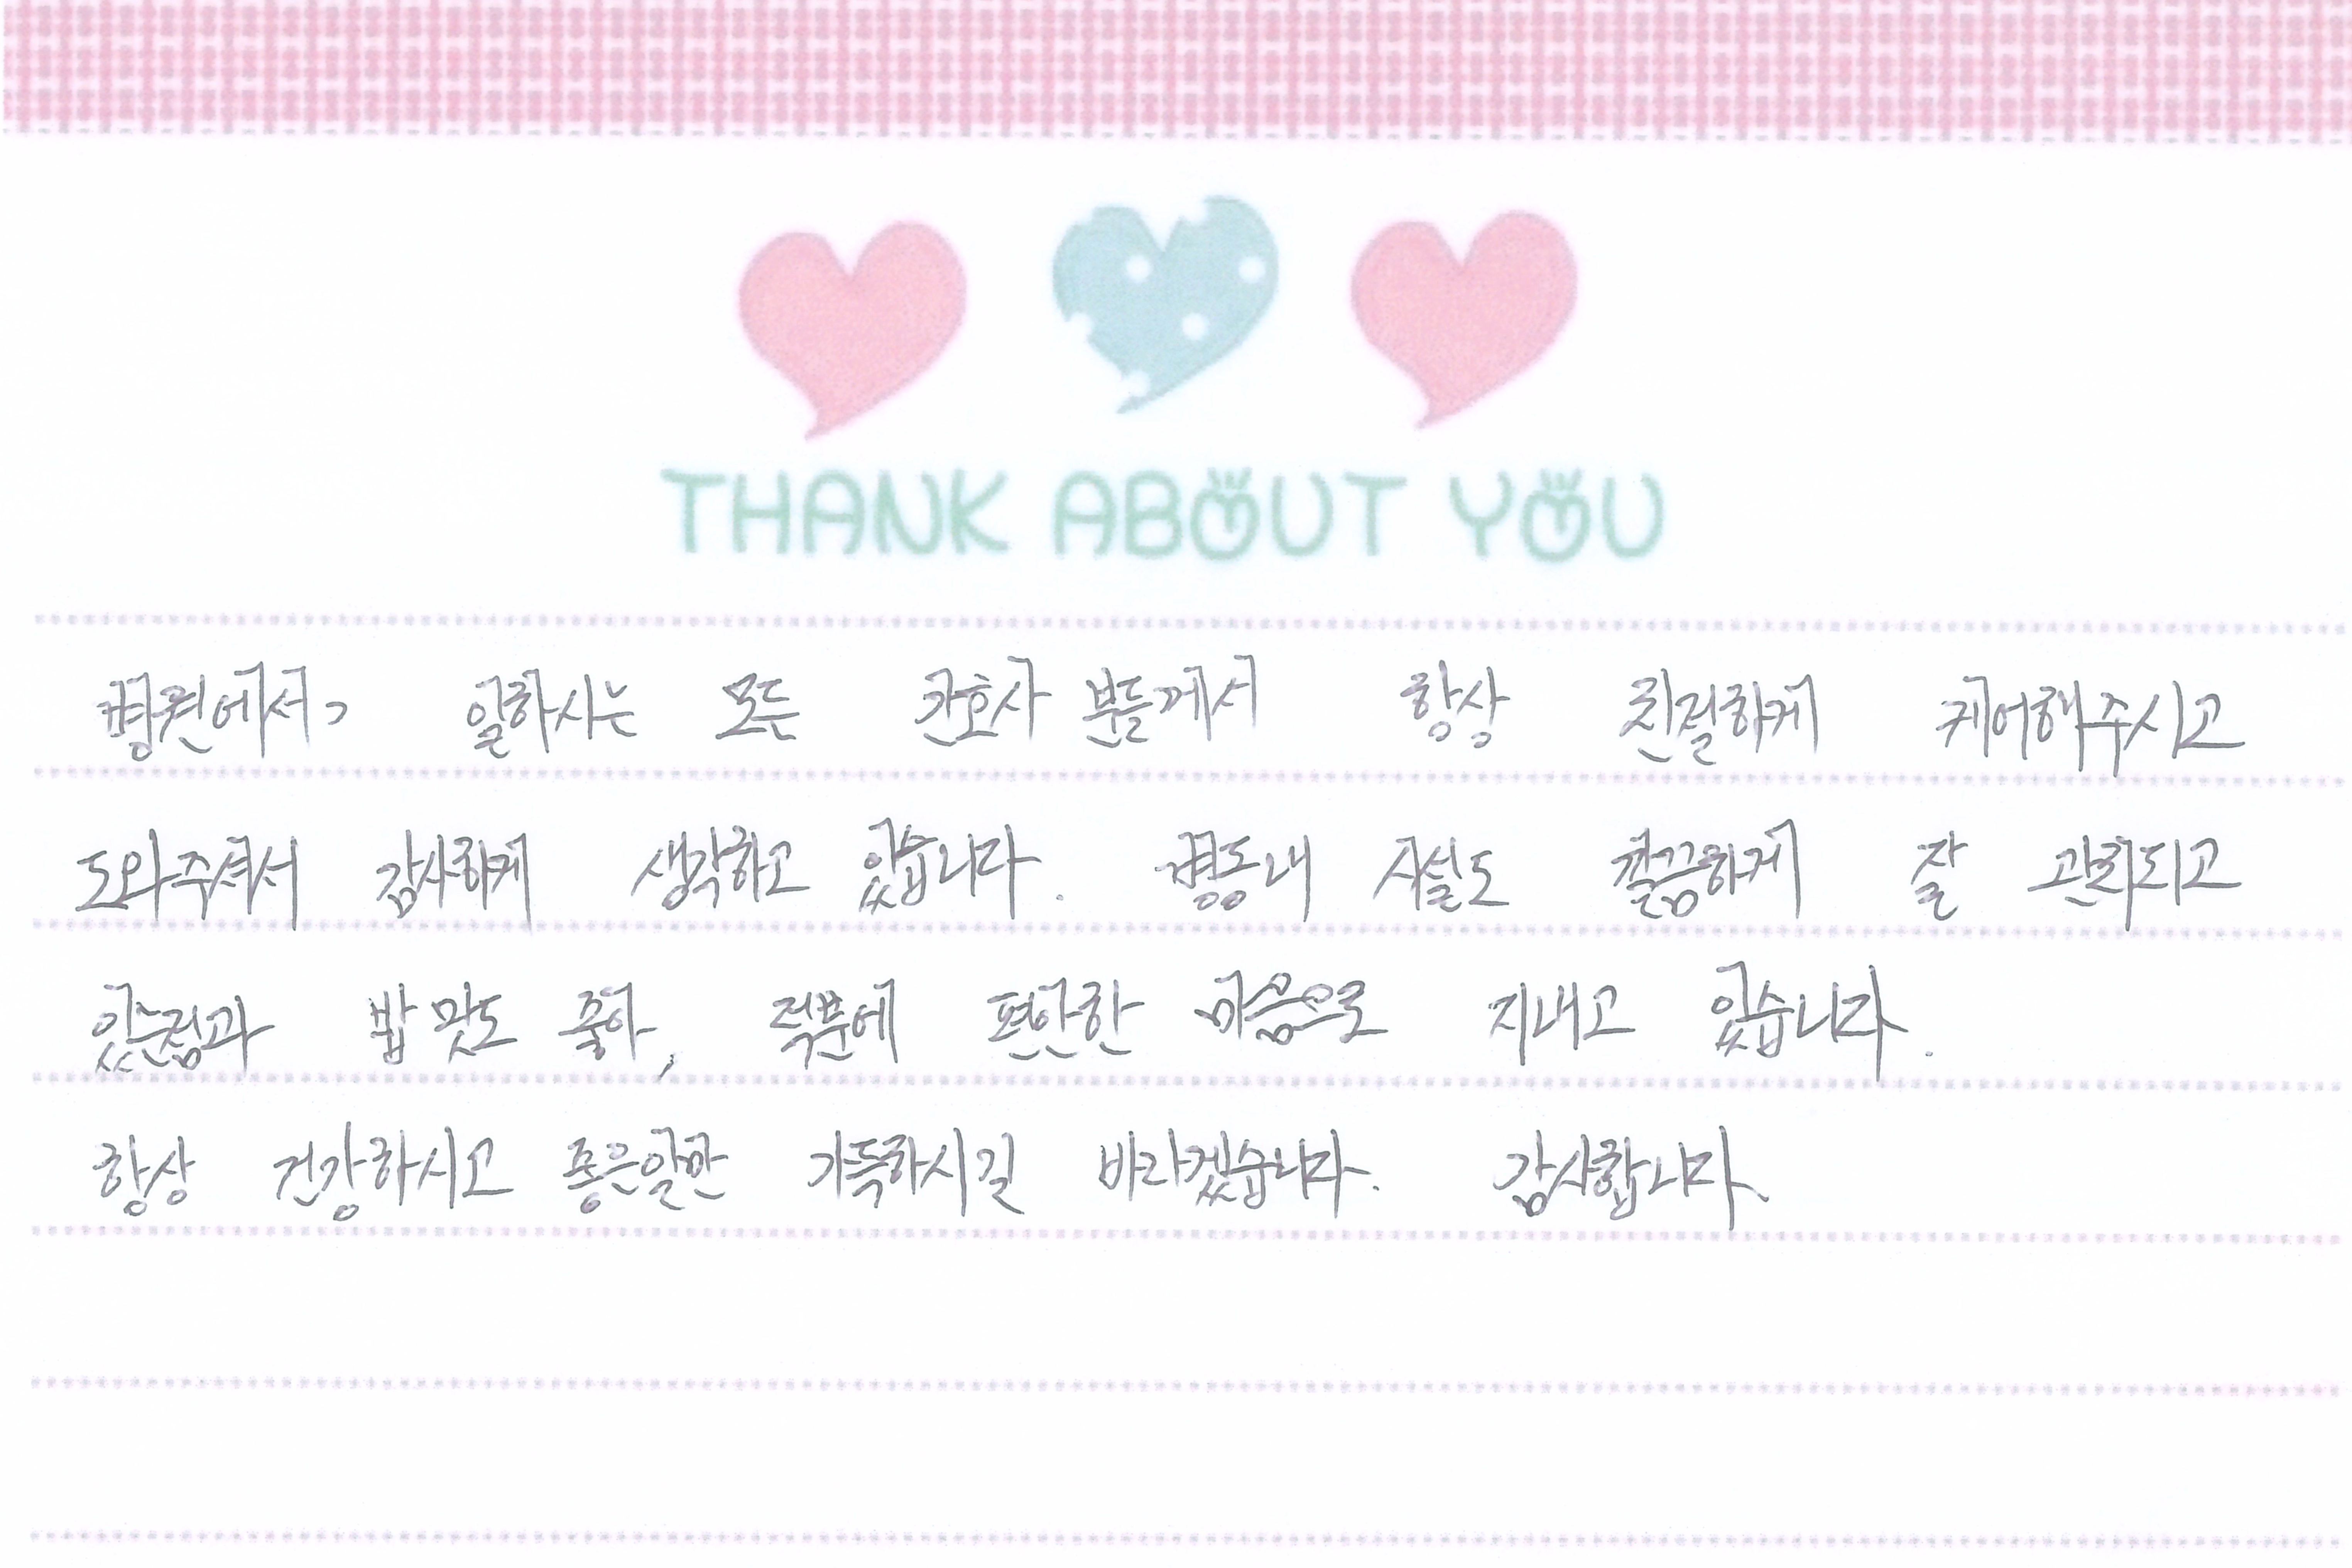 THANK ABOUT YOU
병원에서, 일하시는 모든 간호사 분들께서 항상 친절하게 케어해주시고
도와주셔서 감사하게 생각하고 있습니다. 병동내 시설도 깔끔하게 잘 관리되고
있는점과 밥 맛도 좋아, 덕분에 편안한 마음으로 지내고 있습니다.
항상 건강하시고 좋은일만 가득하시길 바라겠습니다. 감사합니다.